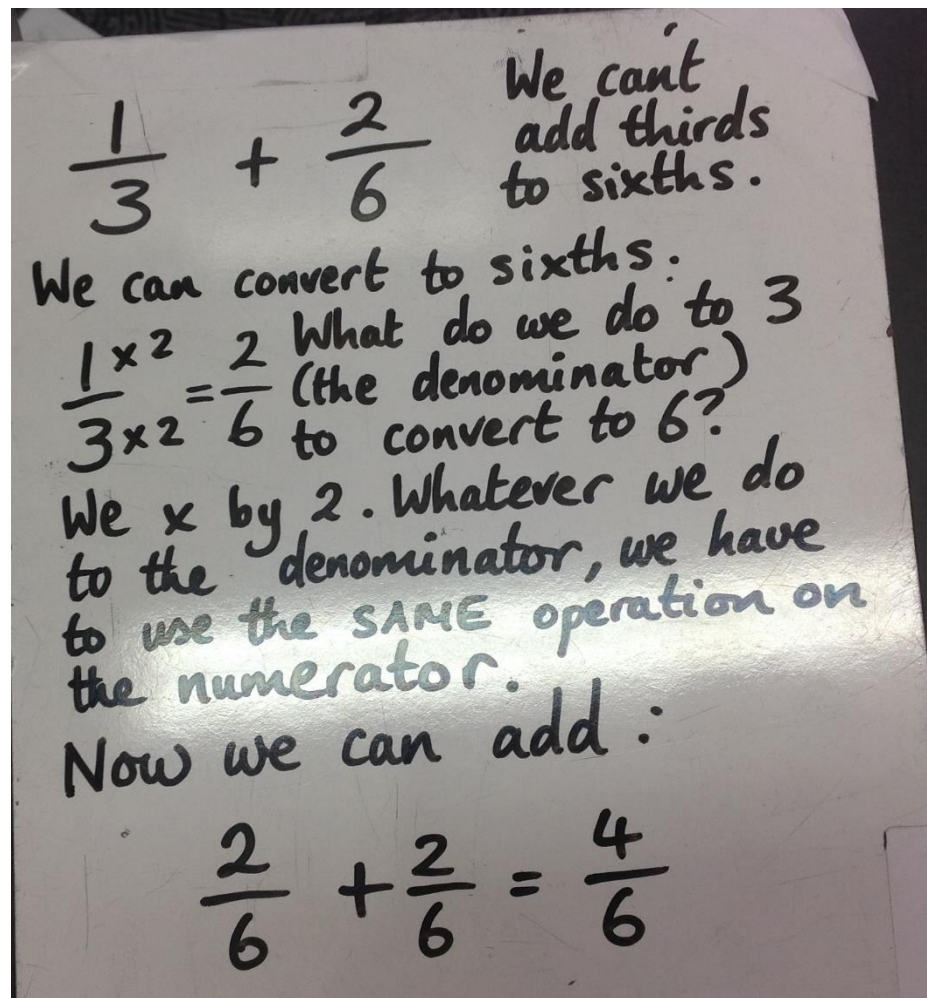 1/3 + 2/6
We can't
add thirds
to sixths.
We can convert to sixths.
1 x 2 / 3 x 2 = 2/6 What do we do to 3
(the denominator)
to convert to 6?
We x by 2. Whatever we do
to the denominator, we have
to use the SAME operation on
the numerator.
Now we can add :
2/6 + 2/6 = 4/6